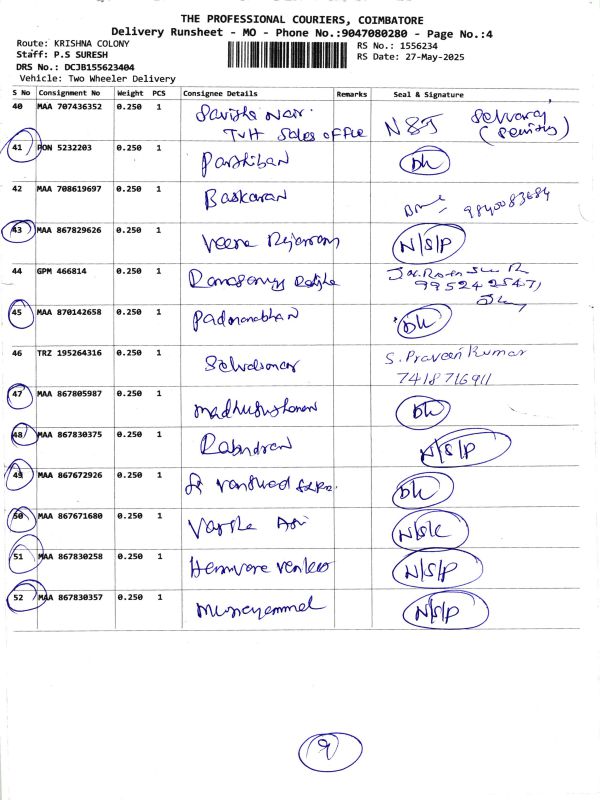 THE PROFESSIONAL COURIERS, COIMBATORE
Delivery Runsheet - MO - Phone No.:9047080280 - Page No.:4
Route: KRISHNA COLONY
Staff: P.S SURESH
DRS No.: DCJB155623404
Vehicle: Two Wheeler Delivery
RS No.: 1556234
RS Date: 27-May-2025
S No Consignment No Weight PCS Consignee Details Remarks Seal & Signature
40 MAA 707436352 0.250 1 Nair. NST
TVH Sales office
41 PON 5232203 0.250 1 Parthiban Dk
42 MAA 708619697 0.250 1 Baskaran 9840083684
43 MAA 867829626 0.250 1 Veera N/S/P
44 GPM 466814 0.250 1 995242547
45 MAA 870142658 0.250 1 Padmanabhan Dk
46 TRZ 195264316 0.250 1 S. Praveen Kumar
7418716911
47 MAA 867805987 0.250 1 Dk
48 MAA 867830375 0.250 1 N/S/P
49 MAA 867672926 0.250 1 Dk
50 MAA 867671680 0.250 1
51 MAA 867830258 0.250 1 N/S/P
52 MAA 867830357 0.250 1 N/S/P
9